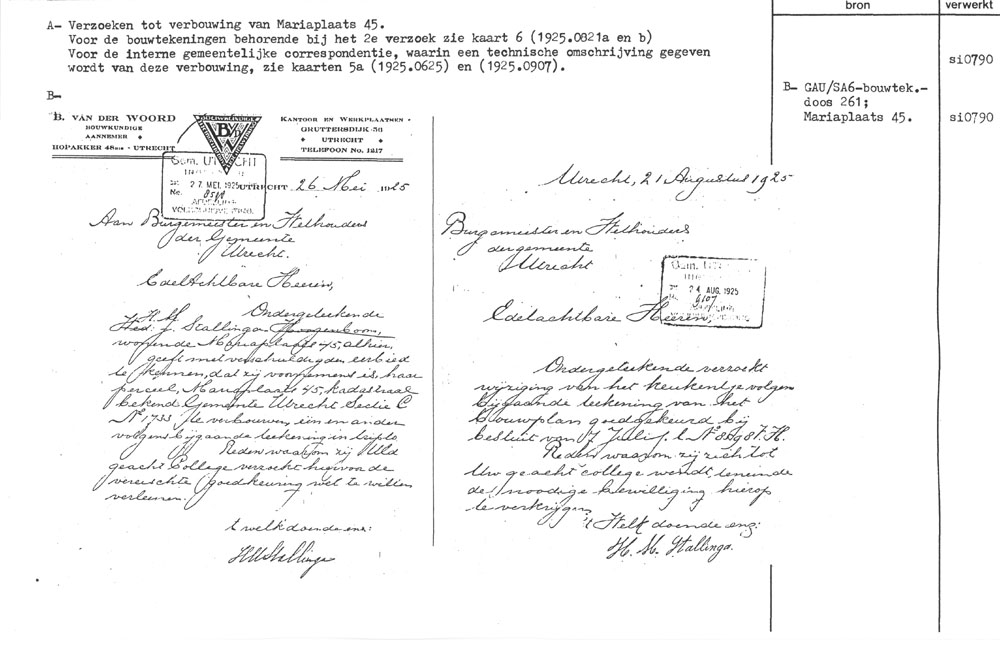 bron
verwerkt
A- Verzoeken tot verbouwing van Mariaplaats 45.
Voor de bouwtekeningen behorende bij het 2e verzoek zie kaart 6 (1925.0821a en b)
Voor de interne gemeentelijke correspondentie, waarin een technische omschrijving gegeven
wordt van deze verbouwing, zie kaarten 5a (1925.0625) en (1925.0907).
si0790
B- GAU/SA6-bouwtek.-
doos 261;
Mariaplaats 45.
si0790
B-
B. VAN DER WOORD
BOUWKUNDIGE
AANNEMER
HOPAKKER 48BIS - UTRECHT
BVDW
KANTOOR EN WERKPLAATSEN
GRUTTERSDIJK-36
UTRECHT
TELEFOON No. 1217
Gem. UTRECHT
27 MEI. 1925
No.
UTRECHT, 26 Mei 1925
Aan Burgemeester en Wethouders
der Gemeente
Utrecht.
EdelAchtbare Heeren,
Ondergeteekende
H.M.
Wed. J. Stallinga Hoogenboom,
wonende Mariaplaats 45, alhier,
geeft met verschuldigden eerbied
te kennen, dat zij voornemens is, haar
perceel, Mariaplaats 45, kadastraal
bekend Gemeente Utrecht Sectie C
No 1733 te verbouwen, een en ander
volgens bijgaande teekening in triplo
Reden waarom zij Uld
geacht College verzoekt hiervoor de
vereischte goedkeuring wel te willen
verleenen.
't welk doende enz:
HMStallinga
Utrecht, 21 Augustus 1925
Burgemeester en Wethouders
der gemeente
Utrecht
Gem. UTRECHT
24 AUG. 1925
No. 6107
Edelachtbare Heeren,
Ondergeteekende verzoekt
wijziging van het keukentje volgens
bijgaande teekening van het
bouwplan goedgekeurd bij
besluit van 17 Juli j.l. No
Reden waarom zij zich tot
Uw geacht college wendt, teneinde
de noodige bewilliging hierop
te verkrijgen
't Welk doende enz:
H. M. Stallinga.